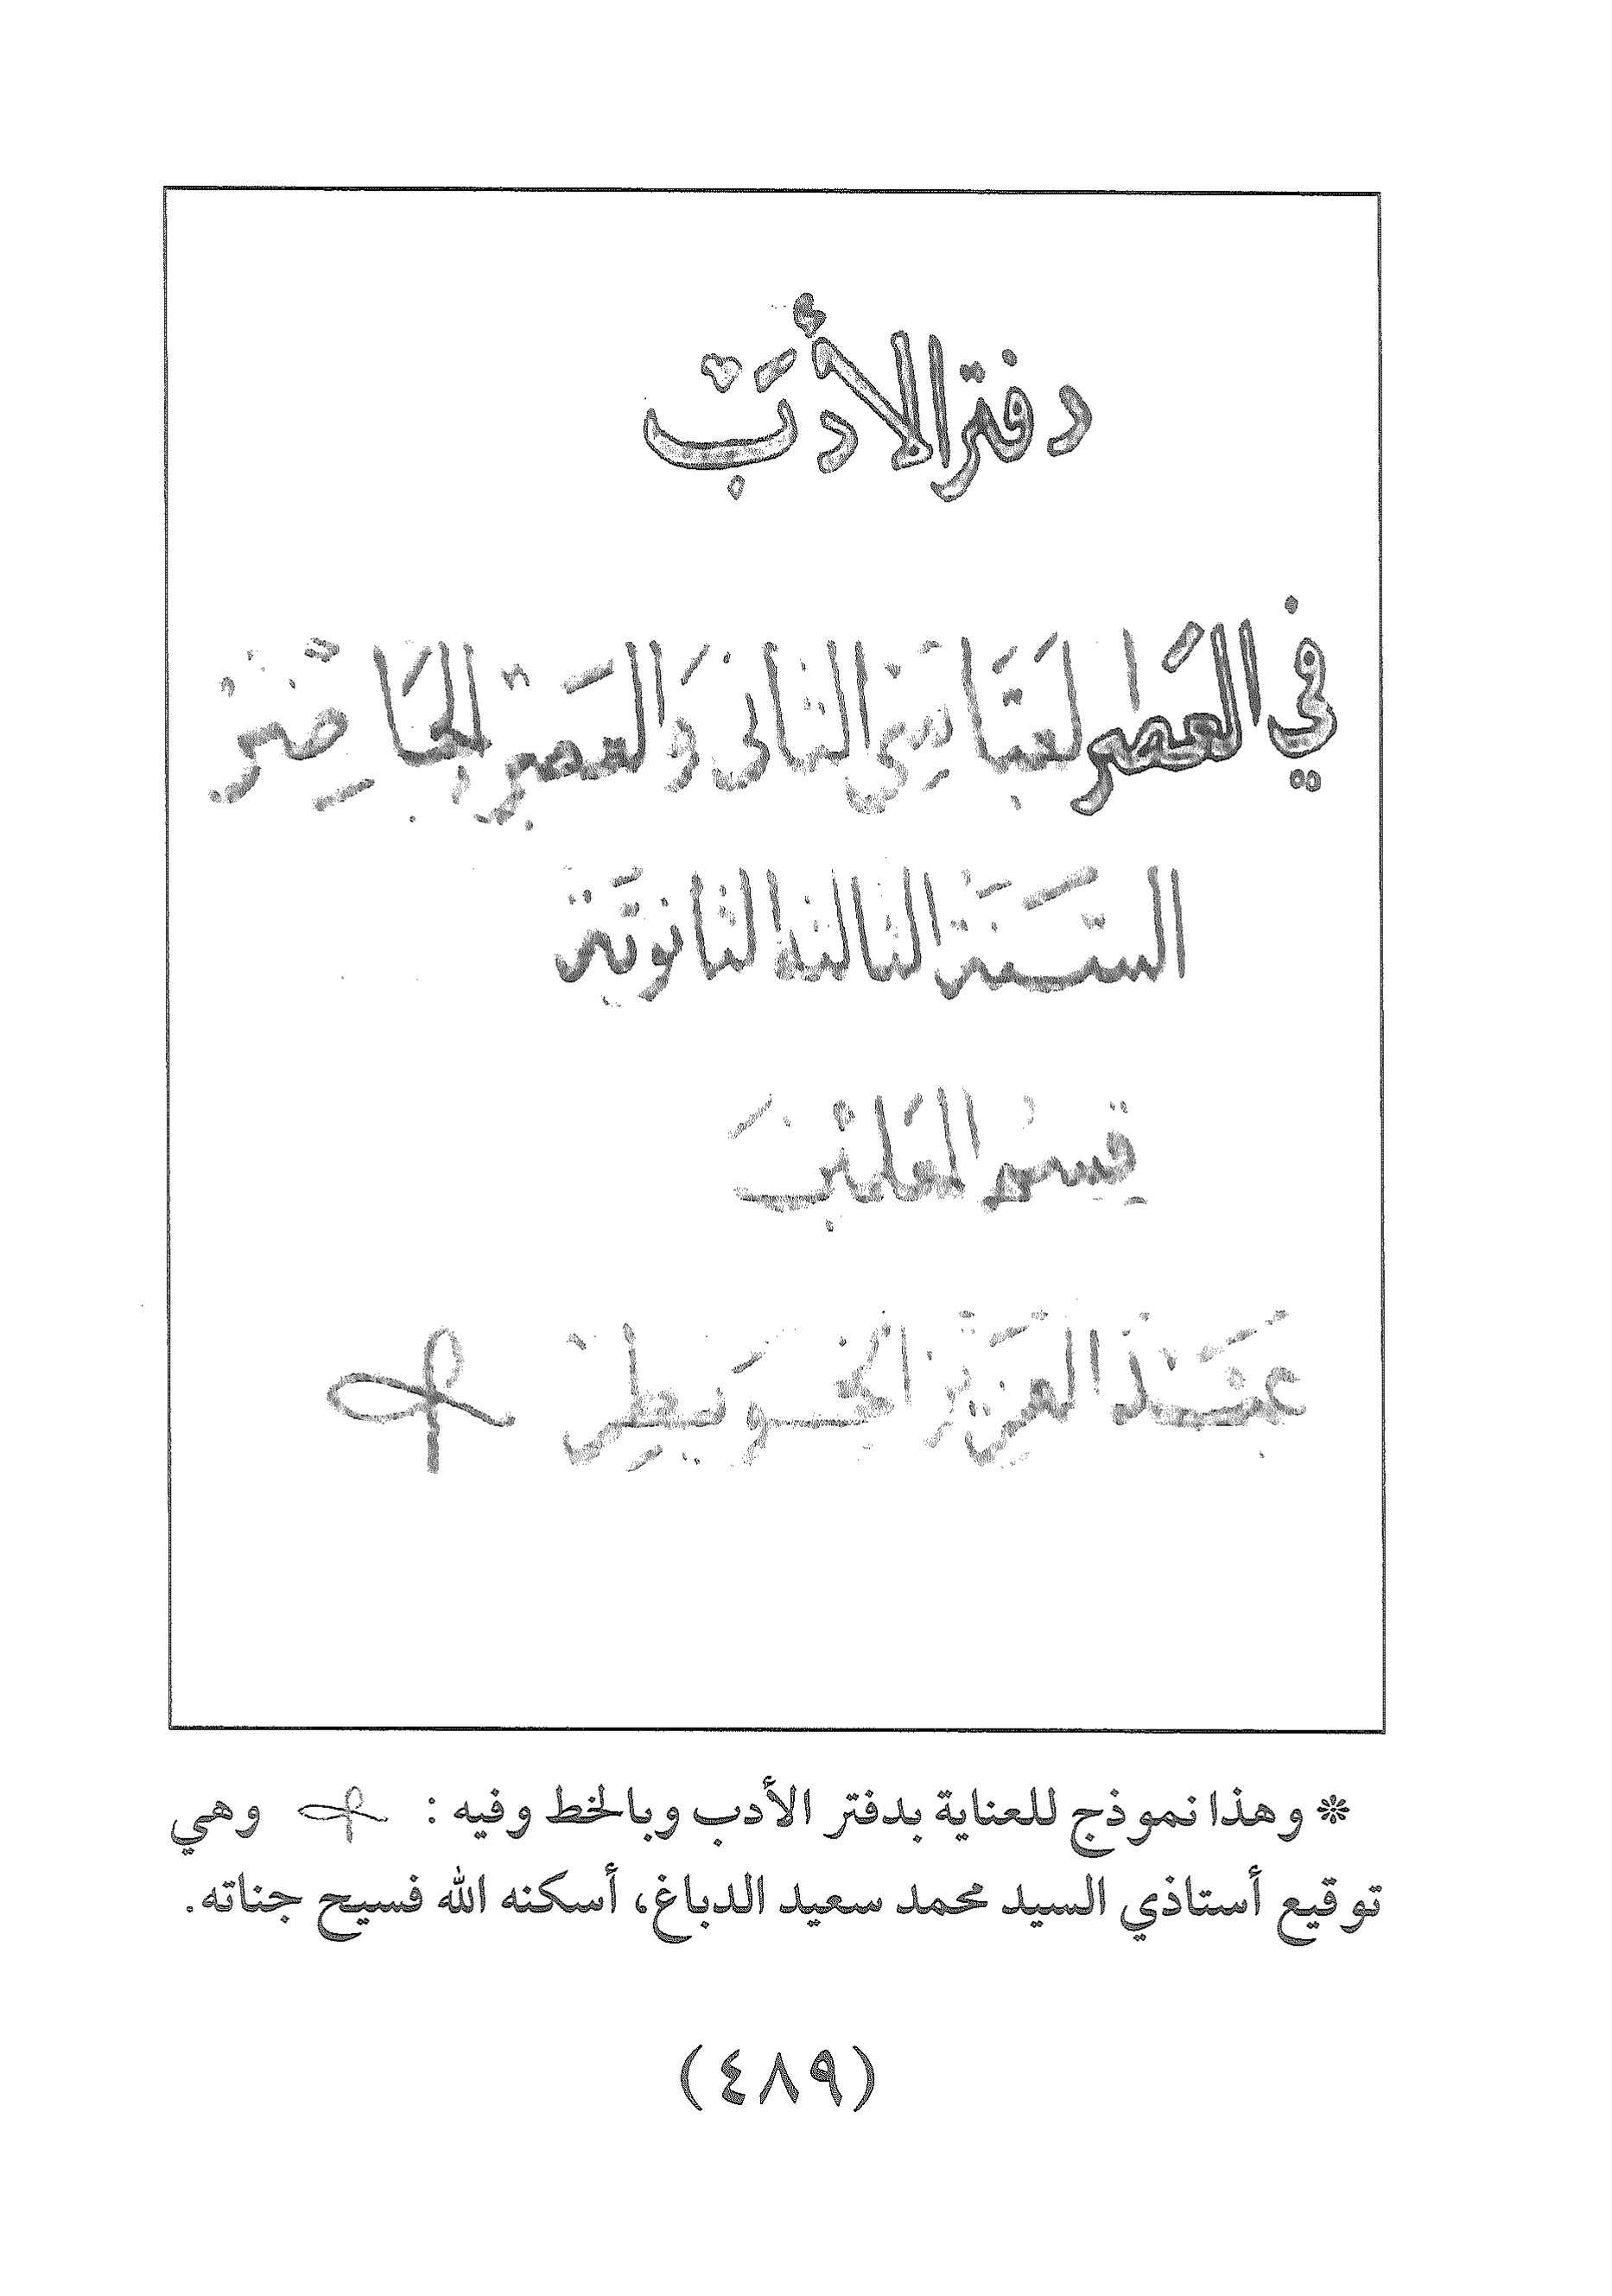 دفتر الأدب
في العصر العباسي الثاني والعصر الحاضر
السنة الثالثة الثانوية
قسم المعلمين
عبد العزيز الخويطر
* وهذا نموذج للعناية بدفتر الأدب وبالخط وفيه : وهي
توقيع أستاذي السيد محمد سعيد الدباغ، أسكنه الله فسيح جناته.
(٤٨٩)